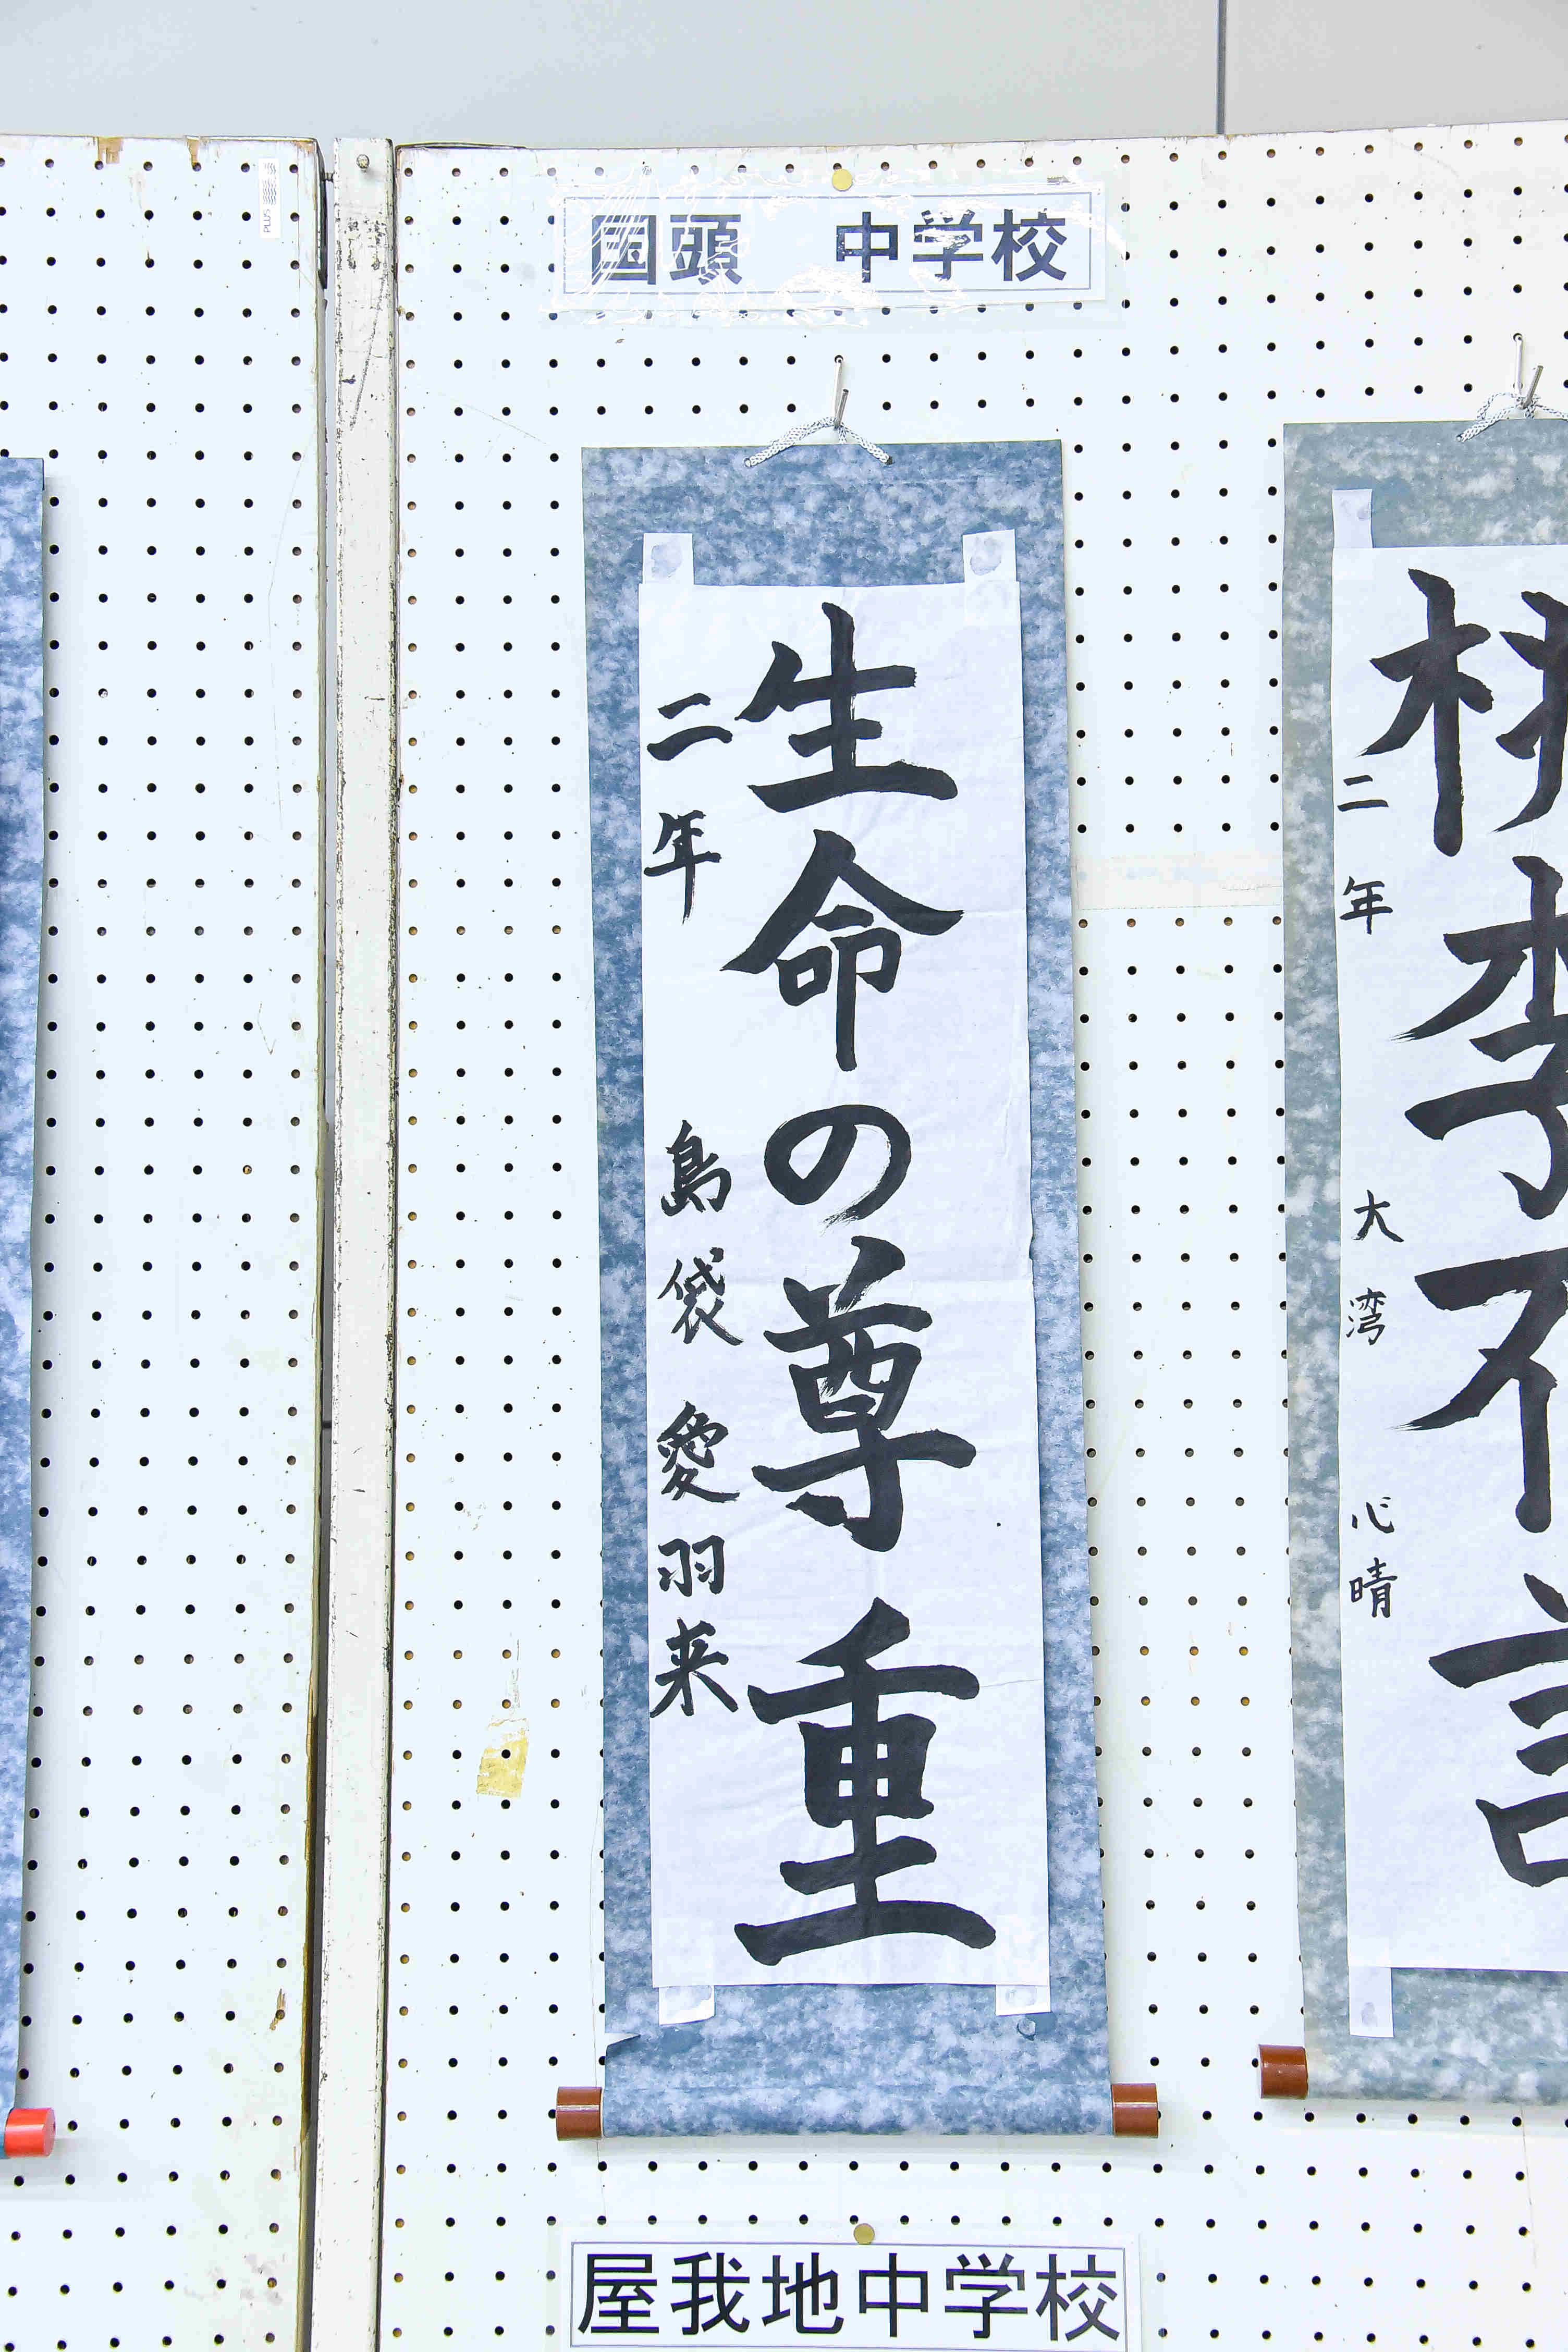 PLUS
国頭　中学校
生命の尊重
二年　島袋愛羽来
桃李不言
二年　大湾　心晴
屋我地中学校